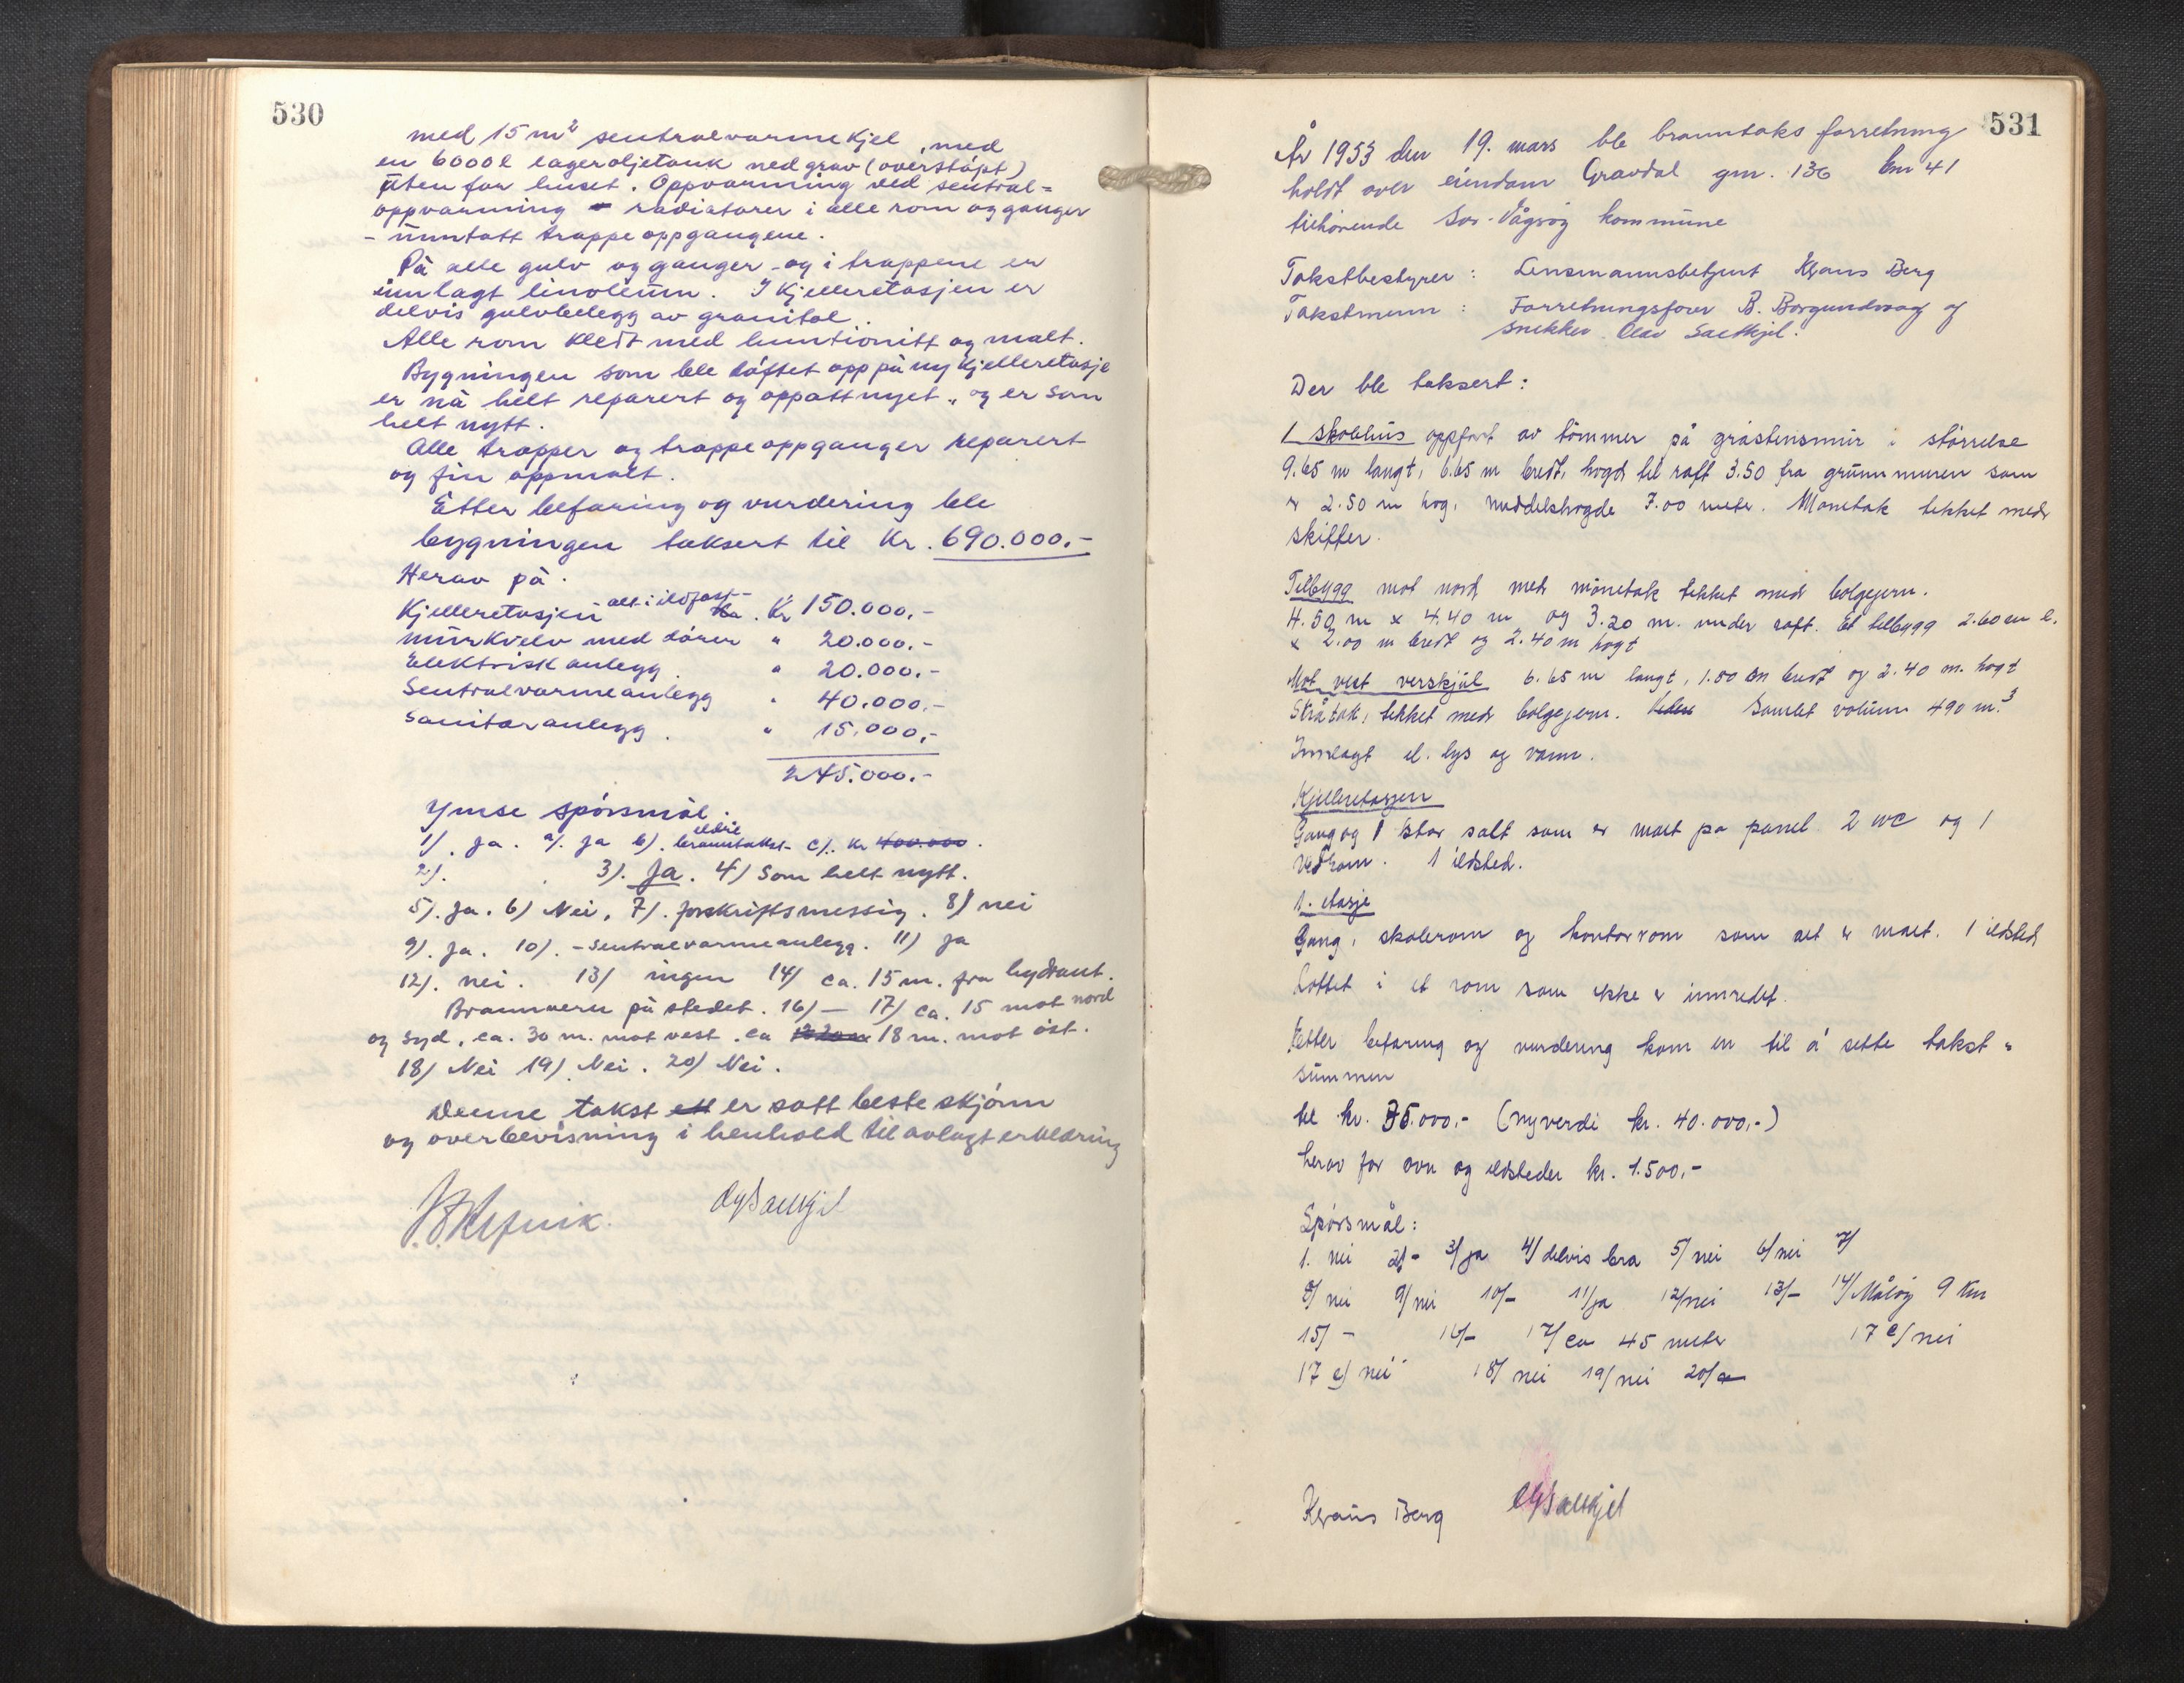 530
med 15 m² sentralvarmekjel, med
en 6000 l lageroljetank nedgrav (overstøpt)
uten for huset. Oppvarming ved sentral=
oppvarming - radiatorer i alle rom og ganger
- unntatt trappeoppgangene.
På alle gulv og ganger - og i trappene er
innlagt linoleum. I kjelleretasjen er
delvis gulvbelegg av granitol.
Alle rom kledt med huntionitt og malt.
Bygningen som ble løftet opp på ny kjelleretasje
er nå helt reparert og oppattnyet, og er som
helt nytt.
Alle trapper og trappeoppganger reparert
og fin oppmalt.
Etter befaring og vurdering ble
bygningen taksert til kr. 690.000.-
Herav på.
Kjelleretasjen alt i ildfast- Kr 150.000,-
murkvelv med dører " 20.000.-
Elektrisk anlegg. " 20.000.-
Sentralvarmeanlegg " 40.000.-
Sanitæranlegg. " 15.000,-
245.000.-
Ymse spørsmål.
1). Ja. a). Ja b). eldre branntakst- c). kr 400.000.
2). 3). Ja. 4) Som helt nytt.
5). Ja. 6) Nei. 7). forskriftsmessig. 8) nei
9). Ja. 10). - sentralvarmeanlegg. 11) Ja
12). nei. 13) ingen 14) ca. 15 m. fra hydrant.
Brannvern på stedet. 16) — 17) ca. 15 mot nord
og syd, ca. 30 m. mot vest. ca 18 m. mot øst.
18) Nei 19) Nei. 20) Nei.
Denne takst er satt beste skjønn
og overbevisning i henhold til avlagt erklæring
531
År 1953 den 19. mars ble branntaks forretning
holdt over eiendom Gravdal gnr. 136 bnr 41
tilhørende Sør-Vågsøy kommune
Takstbestyrer: Lensmannsbetjent Kjraus Berg
Takstmenn: Forretningsfører B. Borgundvåg og
snekker Olav Sætkjel.
Der ble taksert:
1 skolehus oppført av tømmer på gråstensmur i størrelse
9.65 m langt, 6.65 m bredt, høgd til raft 3.50 fra grunnmuren som
er 2.50 m høg, middelshøgde 7.00 meter. Mønetak tekket med
skiffer.
Tilbygg mot nord med mønetak tekket med bølgejern.
4.50 m x 4.40 m og 3.20 m. under raft. Et tilbygg 2.60 m l.
x 2.00 m bredt og 2.40 m høgt
Mot vest verskjul 6.65 m langt, 1.00 m bredt og 2.40 m. høgt
Skråtak, tekket med bølgejern. Samlet volum 490 m.³
Innlagt el. lys og vann.
Kjelleretasjen
Gang og 1 stor salt som er malt på panel 2 wc og 1
vedrom. 1 ildsted.
1. etasje
Gang, skolerom og kontorrom som alt er malt. 1 ildsted
Loftet i et rom som ikke er innredet.
Etter befaring og vurdering kom en til å sette takst =
summen
til kr. 35.000,- (nyverdi kr. 40.000,-)
herav for ovn og ildsteder kr. 1.500,-
Spørsmål:
1. nei 2/- 3/ ja 4/ delvis bra 5/ nei 6/ nei 7/
8/ nei 9/ nei 10/- 11/ ja 12/ nei 13/- 14/ Måløy 9 km
15/- 16/- 17/ ca 45 meter 17 c/ nei
17 e/ nei 18/ nei 19/ nei 20/-
Kjraus Berg